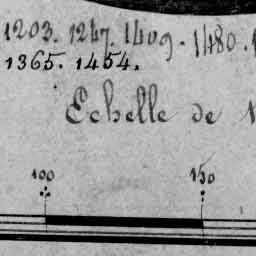 1203. 1247. 1409. 1480.
1365. 1454.
Echelle de
100 150